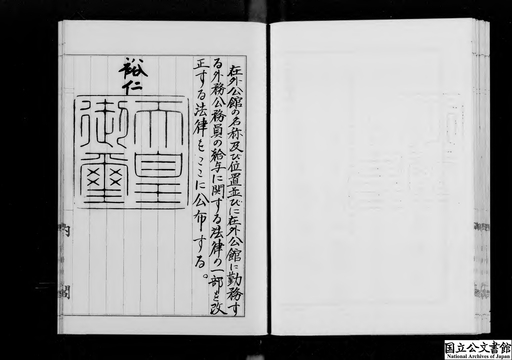 在外公館の名称及び位置並びに在外公館に勤務す
る外務公務員の給与に関する法律の一部を改
正する法律をここに公布する。
裕仁
天皇
御璽
内閣
国立公文書館
National Archives of Japan